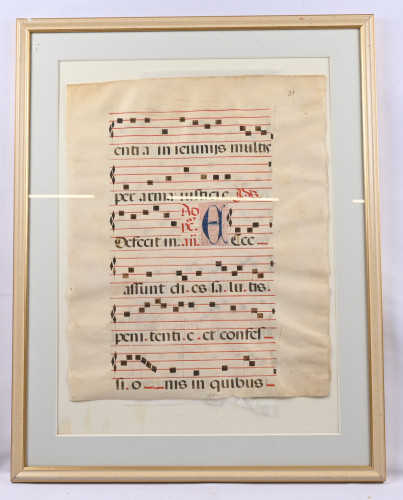 enti a in ieiunijs multis
per arma iusticie. Ps.
Defecit in. Ad ps. an. Ecce
assunt di es sa lu tis.
peni tenti e. et confes
si o nis in quibus